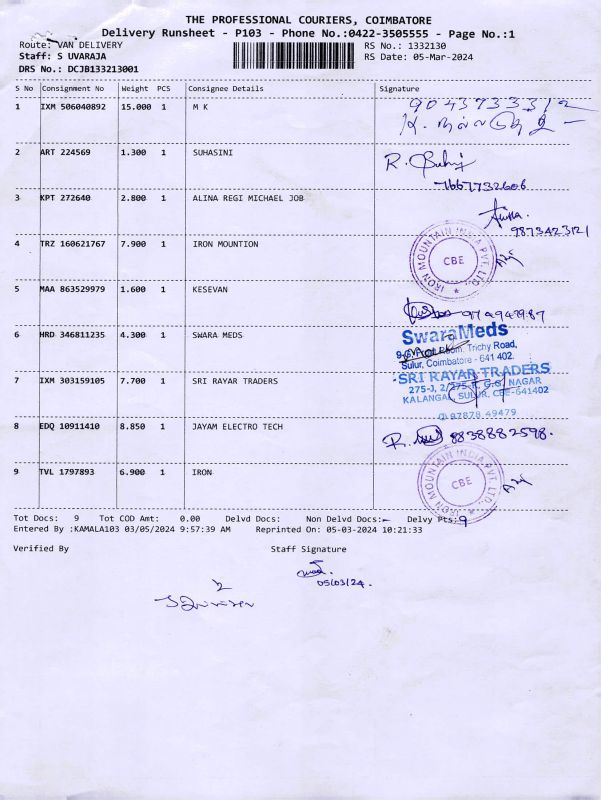 THE PROFESSIONAL COURIERS, COIMBATORE
Delivery Runsheet - P103 - Phone No.:0422-3505555 - Page No.:1
Route: VAN DELIVERY
RS No.: 1332130
Staff: S UVARAJA
RS Date: 05-Mar-2024
DRS No.: DCJB133213001
S No Consignment No Weight PCS Consignee Details Signature
1 IXM 506040892 15.000 1 M K
9043733312
2 ART 224569 1.300 1 SUHASINI
R.
7667732606
3 KPT 272640 2.800 1 ALINA REGI MICHAEL JOB
9873423121
4 TRZ 160621767 7.900 1 IRON MOUNTION
IRON MOUNTAIN INDIA PVT. LTD.
CBE
5 MAA 863529979 1.600 1 KESEVAN
6 HRD 346811235 4.300 1 SWARA MEDS
SwaraMeds
Room, Trichy Road,
Sulur, Coimbatore - 641 402.
7 IXM 303159105 7.700 1 SRI RAYAR TRADERS
SRI RAYAR TRADERS
275-J, G.S. NAGAR
KALANGAL, SULUR, CBE-641402
97878 49479
8 EDQ 10911410 8.850 1 JAYAM ELECTRO TECH
R. 8838882598.
9 TVL 1797893 6.900 1 IRON
IRON MOUNTAIN INDIA PVT. LTD.
CBE
Tot Docs: 9 Tot COD Amt: 0.00 Delvd Docs: Non Delvd Docs:- Delvy Pts:9
Entered By :KAMALA103 03/05/2024 9:57:39 AM Reprinted On: 05-03-2024 10:21:33
Verified By Staff Signature
05/03/24.